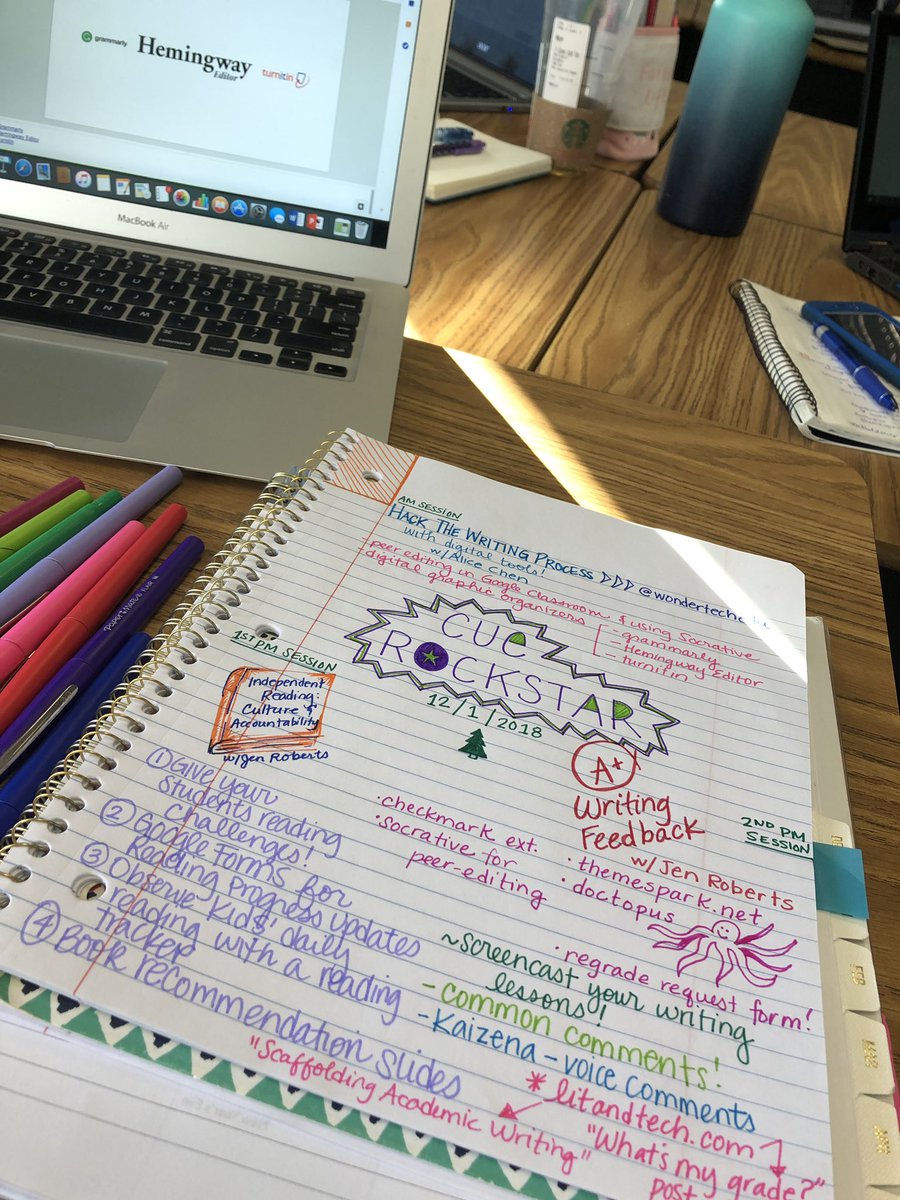 grammarly
Hemingway
Editor
turnitin
MacBook Air
command
AM SESSION
HACK THE WRITING PROCESS
with digital tools!
w/Alice Chen
- peer editing in Google Classroom & using Socrative
- digital graphic organizers
- grammarly
- Hemingway Editor
- turnitin
CUE
ROCKSTAR
12/1/2018
1ST PM SESSION
Independent
Reading:
Culture &
Accountability
w/Jen Roberts
① Give your
students reading
challenges!
② Google Forms for
Reading progress updates
③ Observe kids' daily
reading with a reading
tracker
④ Book recommendation slides
A+
Writing
Feedback
w/Jen Roberts
2ND PM
SESSION
• checkmark ext.
• socrative for
peer-editing
• themespark.net
• doctopus
• regrade request form!
~screencast your writing
lessons!
- common comments!
- Kaizena - voice comments
* litandtech.com
"Scaffolding Academic
Writing"
"What's my grade?"
post
PAPER MATE FLAIR